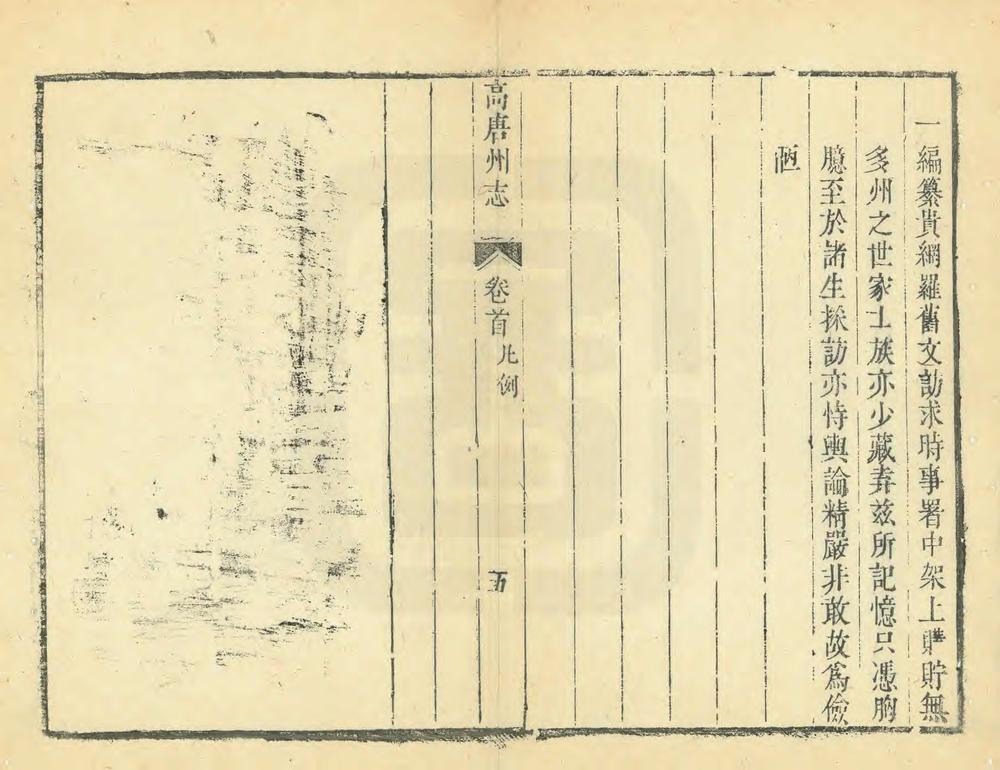 一編纂貴網羅舊文訪求時事署中架上購貯無
多州之世家士族亦少藏弆兹所記憶只憑胸
臆至於諸生採訪亦恃輿論精嚴非敢故爲儉
陋
高唐州志
卷首凡例
五